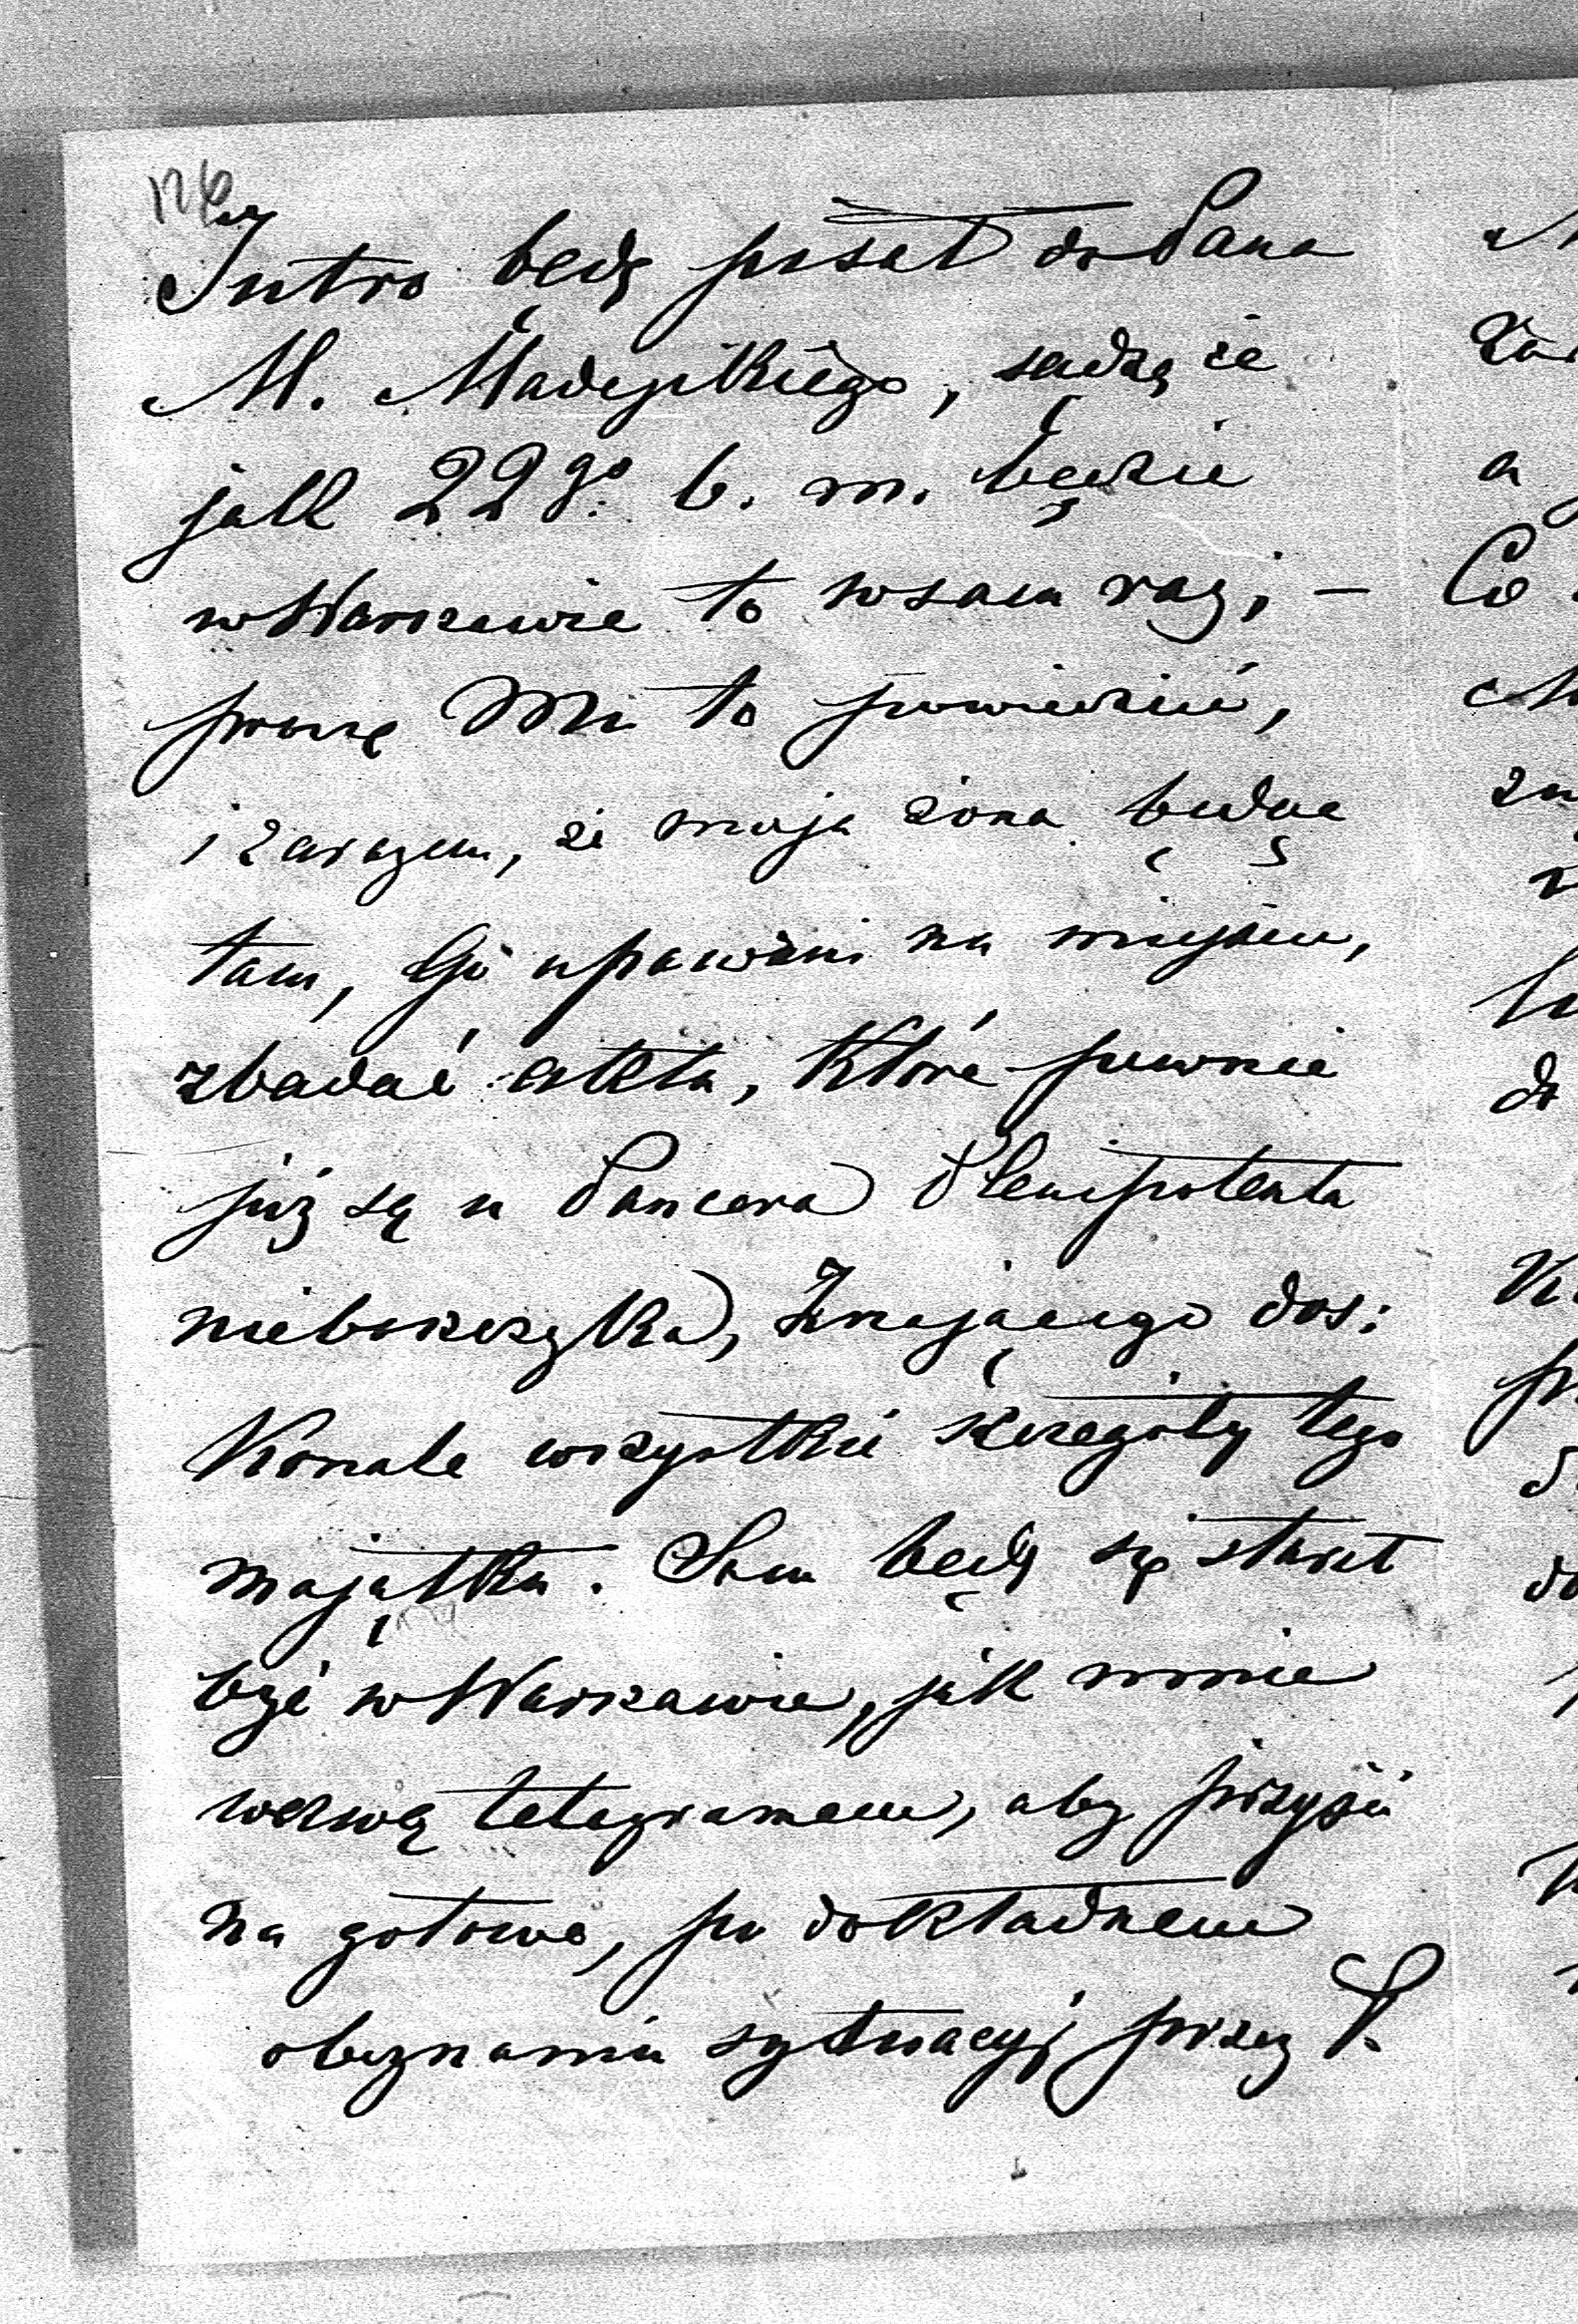 126
Jutro będę pisał do Pana
M. Madejskiego, sądzę że
jak 22go b. m. będzie
w Warszawie to w sam raz; –
proszę Mu to powiedzieć,
i zarazem, że moja żona będąc
tam, Go upoważni na miejscu,
zbadać akta, które pewnie
już są u Pancera Plenipotenta
nieboszczyka, Znającego dos:
Konale wszystkie szczegóły tego
majątku. Sam będę się starał
być w Warszawie, jak mnie
wezwą telegramem, aby przyjść
na gotowe, po dokładnem
obeznaniu sytuacyj przez P.